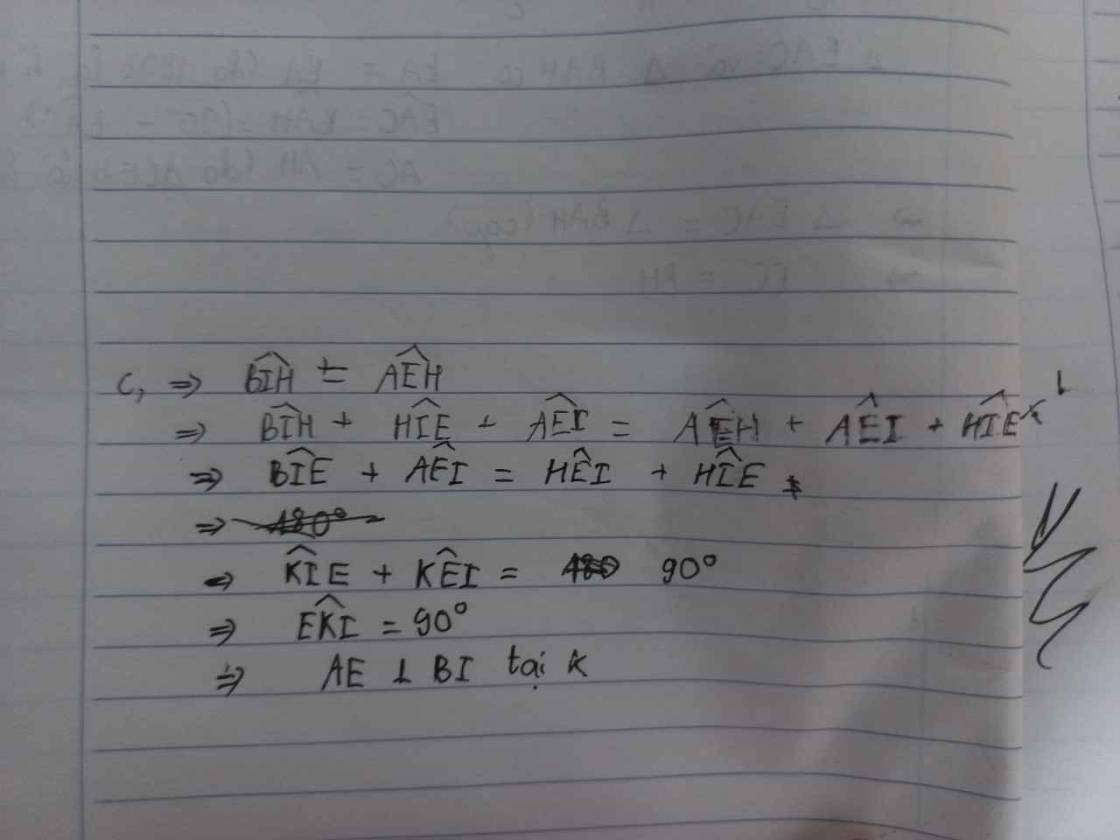 c, ⇒ BIH^ = AEH^
⇒ BIH^ + HIE^ + AEI^ = AEH^ + AEI^ + HIE^
⇒ BIE^ + AEI^ = HEI^ + HIE^
⇒ 180°
⇒ KIE^ + KEI^ = 180 90°
⇒ EKI^ = 90°
⇒ AE ⊥ BI tại K